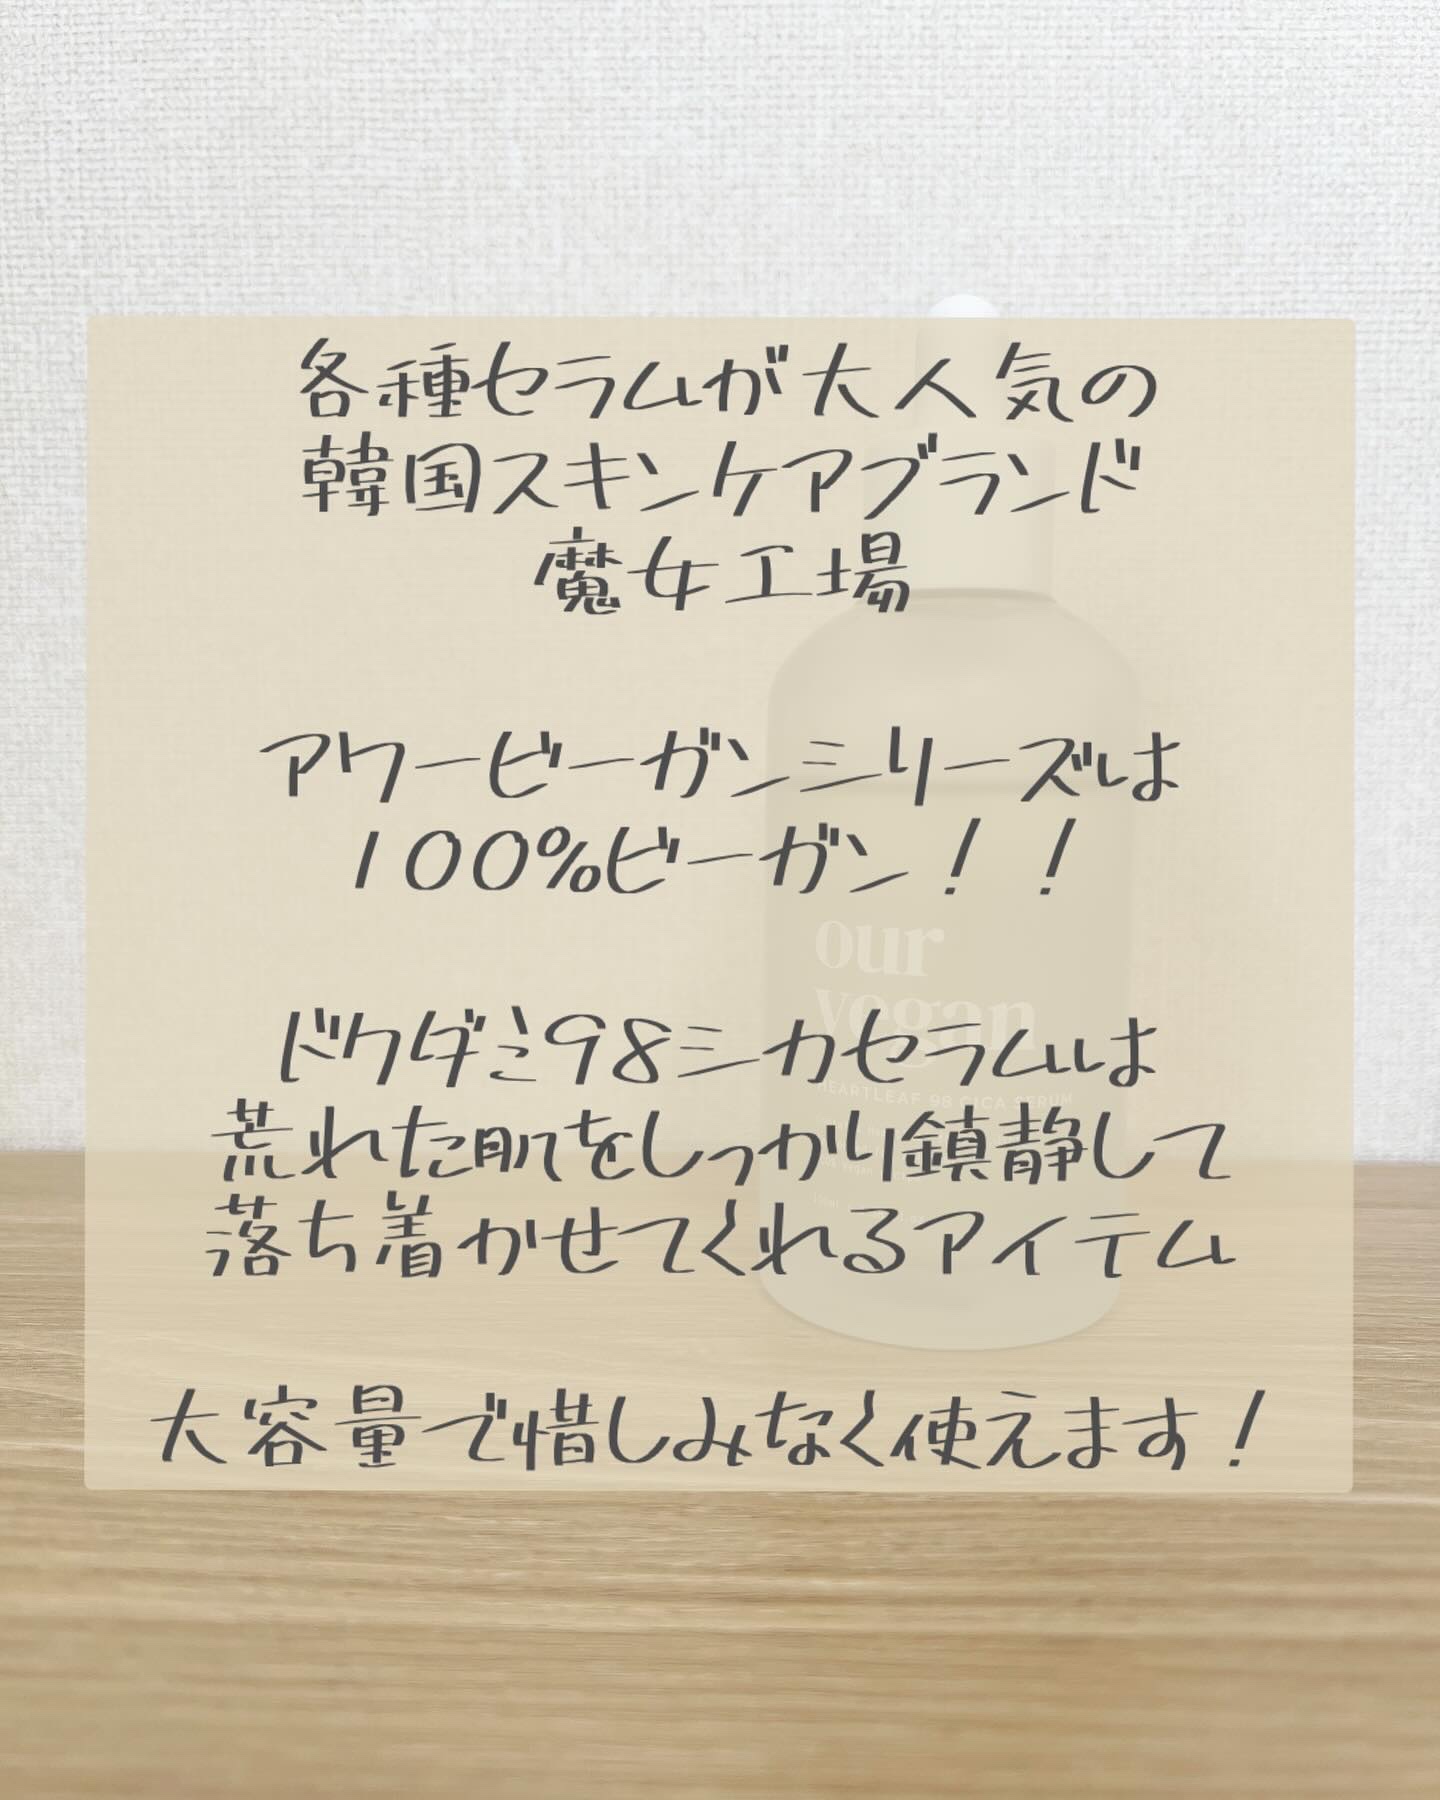 各種セラムが大人気の
韓国スキンケアブランド
魔女工場
アワービーガンシリーズは
100%ビーガン！！
our
vegan
ドクダミ98シカセラムは
HEARTLEAF 98 CICA SERUM
荒れた肌をしっかり鎮静して
落ち着かせてくれるアイテム
大容量で惜しみなく使えます！